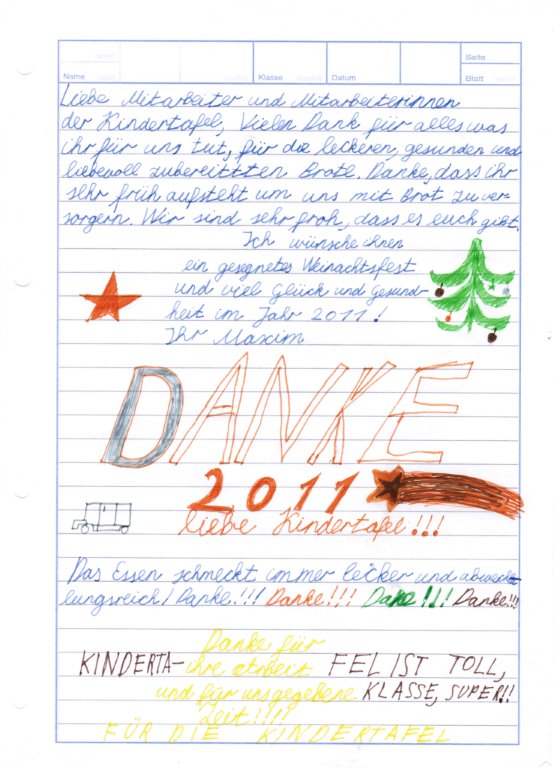 Name
Klasse
Datum
Seite
Blatt
Liebe Mitarbeiter und Mitarbeiterinnen
der Kindertafel, Vielen Dank für alles was
ihr für uns tut, für die leckeren, gesunden und
liebevoll zubereittten Brote. Danke, dass ihr
sehr früh aufsteht um uns mit Brot zu ver-
sorgern. Wir sind sehr froh, dass es euch gibt.
Ich wünsche ihnen
ein gesegnetes Weinachtsfest
und viel Glück und Gesund-
heit im Jahr 2011!
Ihr Maxim
DANKE
2011
liebe Kindertafel!!!
Das Essen schmeckt immer lecker und abwechs-
lungsreich! Danke!!! Danke!!! Dake!!! Danke!!!
Danke für
KINDERTA- ihre arbeit FEL IST TOLL,
und für uns gegebene KLASSE, SUPER!!
Zeit!!!!
FÜR DIE KINDERTAFEL